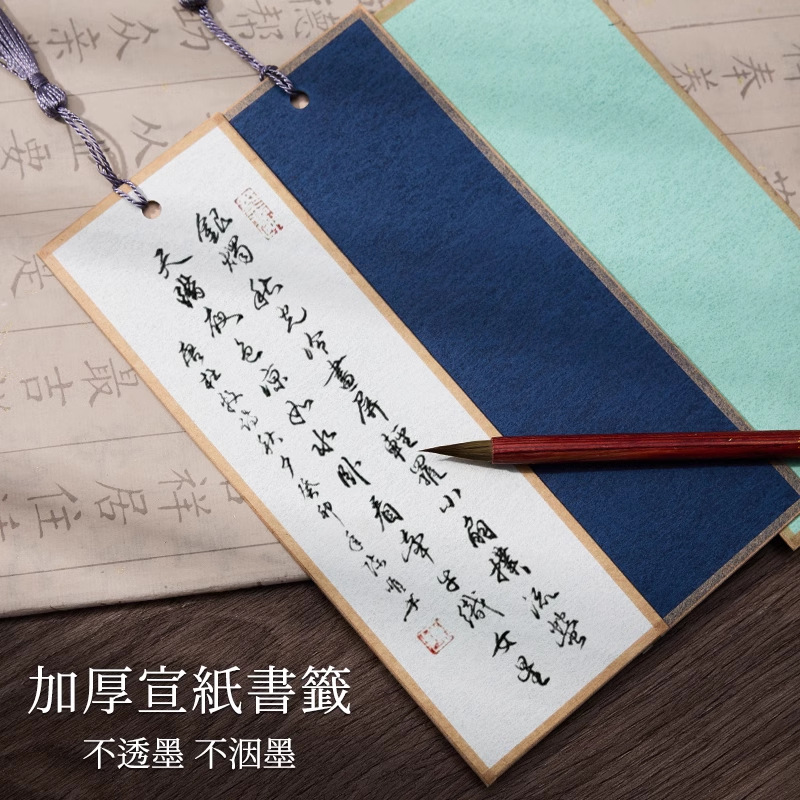 銀燭秋光冷畫屏輕羅小扇撲流螢
天階夜色涼如水卧看牽牛織女星
唐杜牧詩秋夕癸卯年
最吉
祥居住
加厚宣紙書籤
不透墨 不洇墨